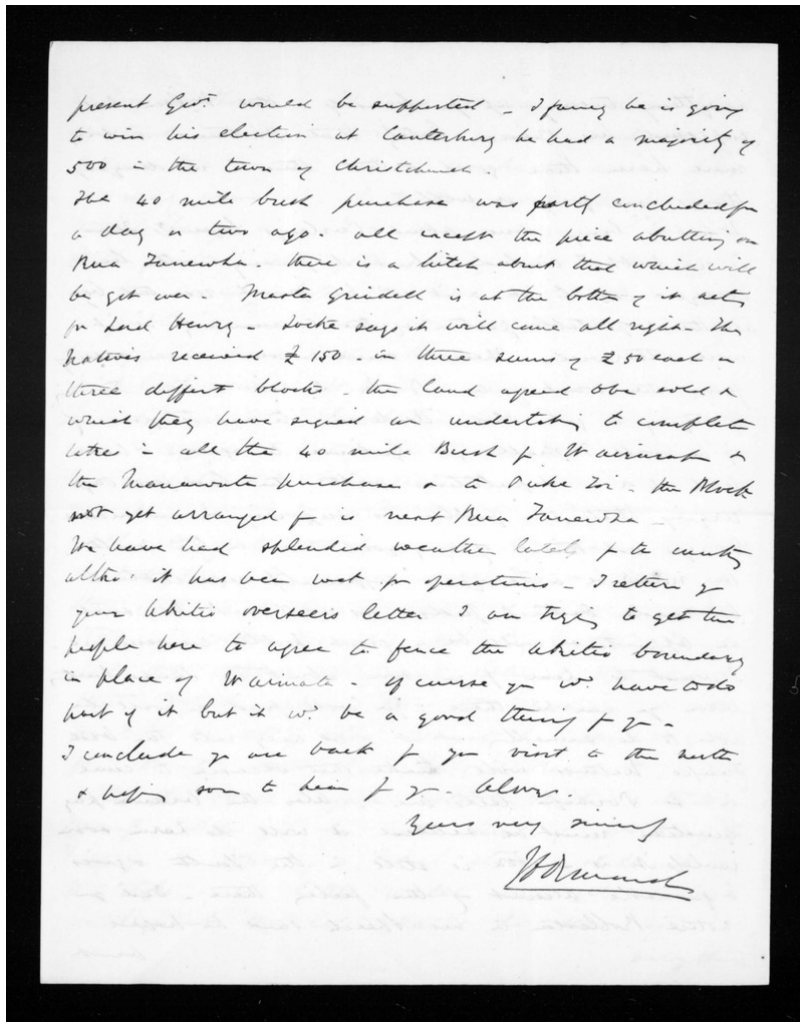 present Govt would be supported - I fancy he is going
to win his election at Canterbury he had a majority of
500 in the town of Christchurch.
The 40 mile bush purchase was partly concluded for
a day or two ago. all except the piece abutting on
Rua Taniwha. there is a hitch about that which will
be got over. Master Grindell is at the bottom of it acts
for Lord Henry - Locke says it will come all right. The
Natives received £150 - in three sums of £50 each on
three differt blocks. the land agreed to be sold &
which they have signed an undertaking to complete
later is all the 40 mile Bush fm Wairarapa to
the Manawatu purchase & to Puke Toi. the Block
not yet arranged for is next Rua Taniwha -
We have had splendid weather lately for the country
altho' it has been wet for operations - I return you
your Akitio overseers letter I am trying to get the
people here to agree to fence the Akitio boundary
in place of Waimata - of course you wd. have to do
part of it but it wd. be a good thing for you -
I conclude you are back fm your visit to the north
& hoping soon to hear fm you
Yours very sincerely
JD Ormond